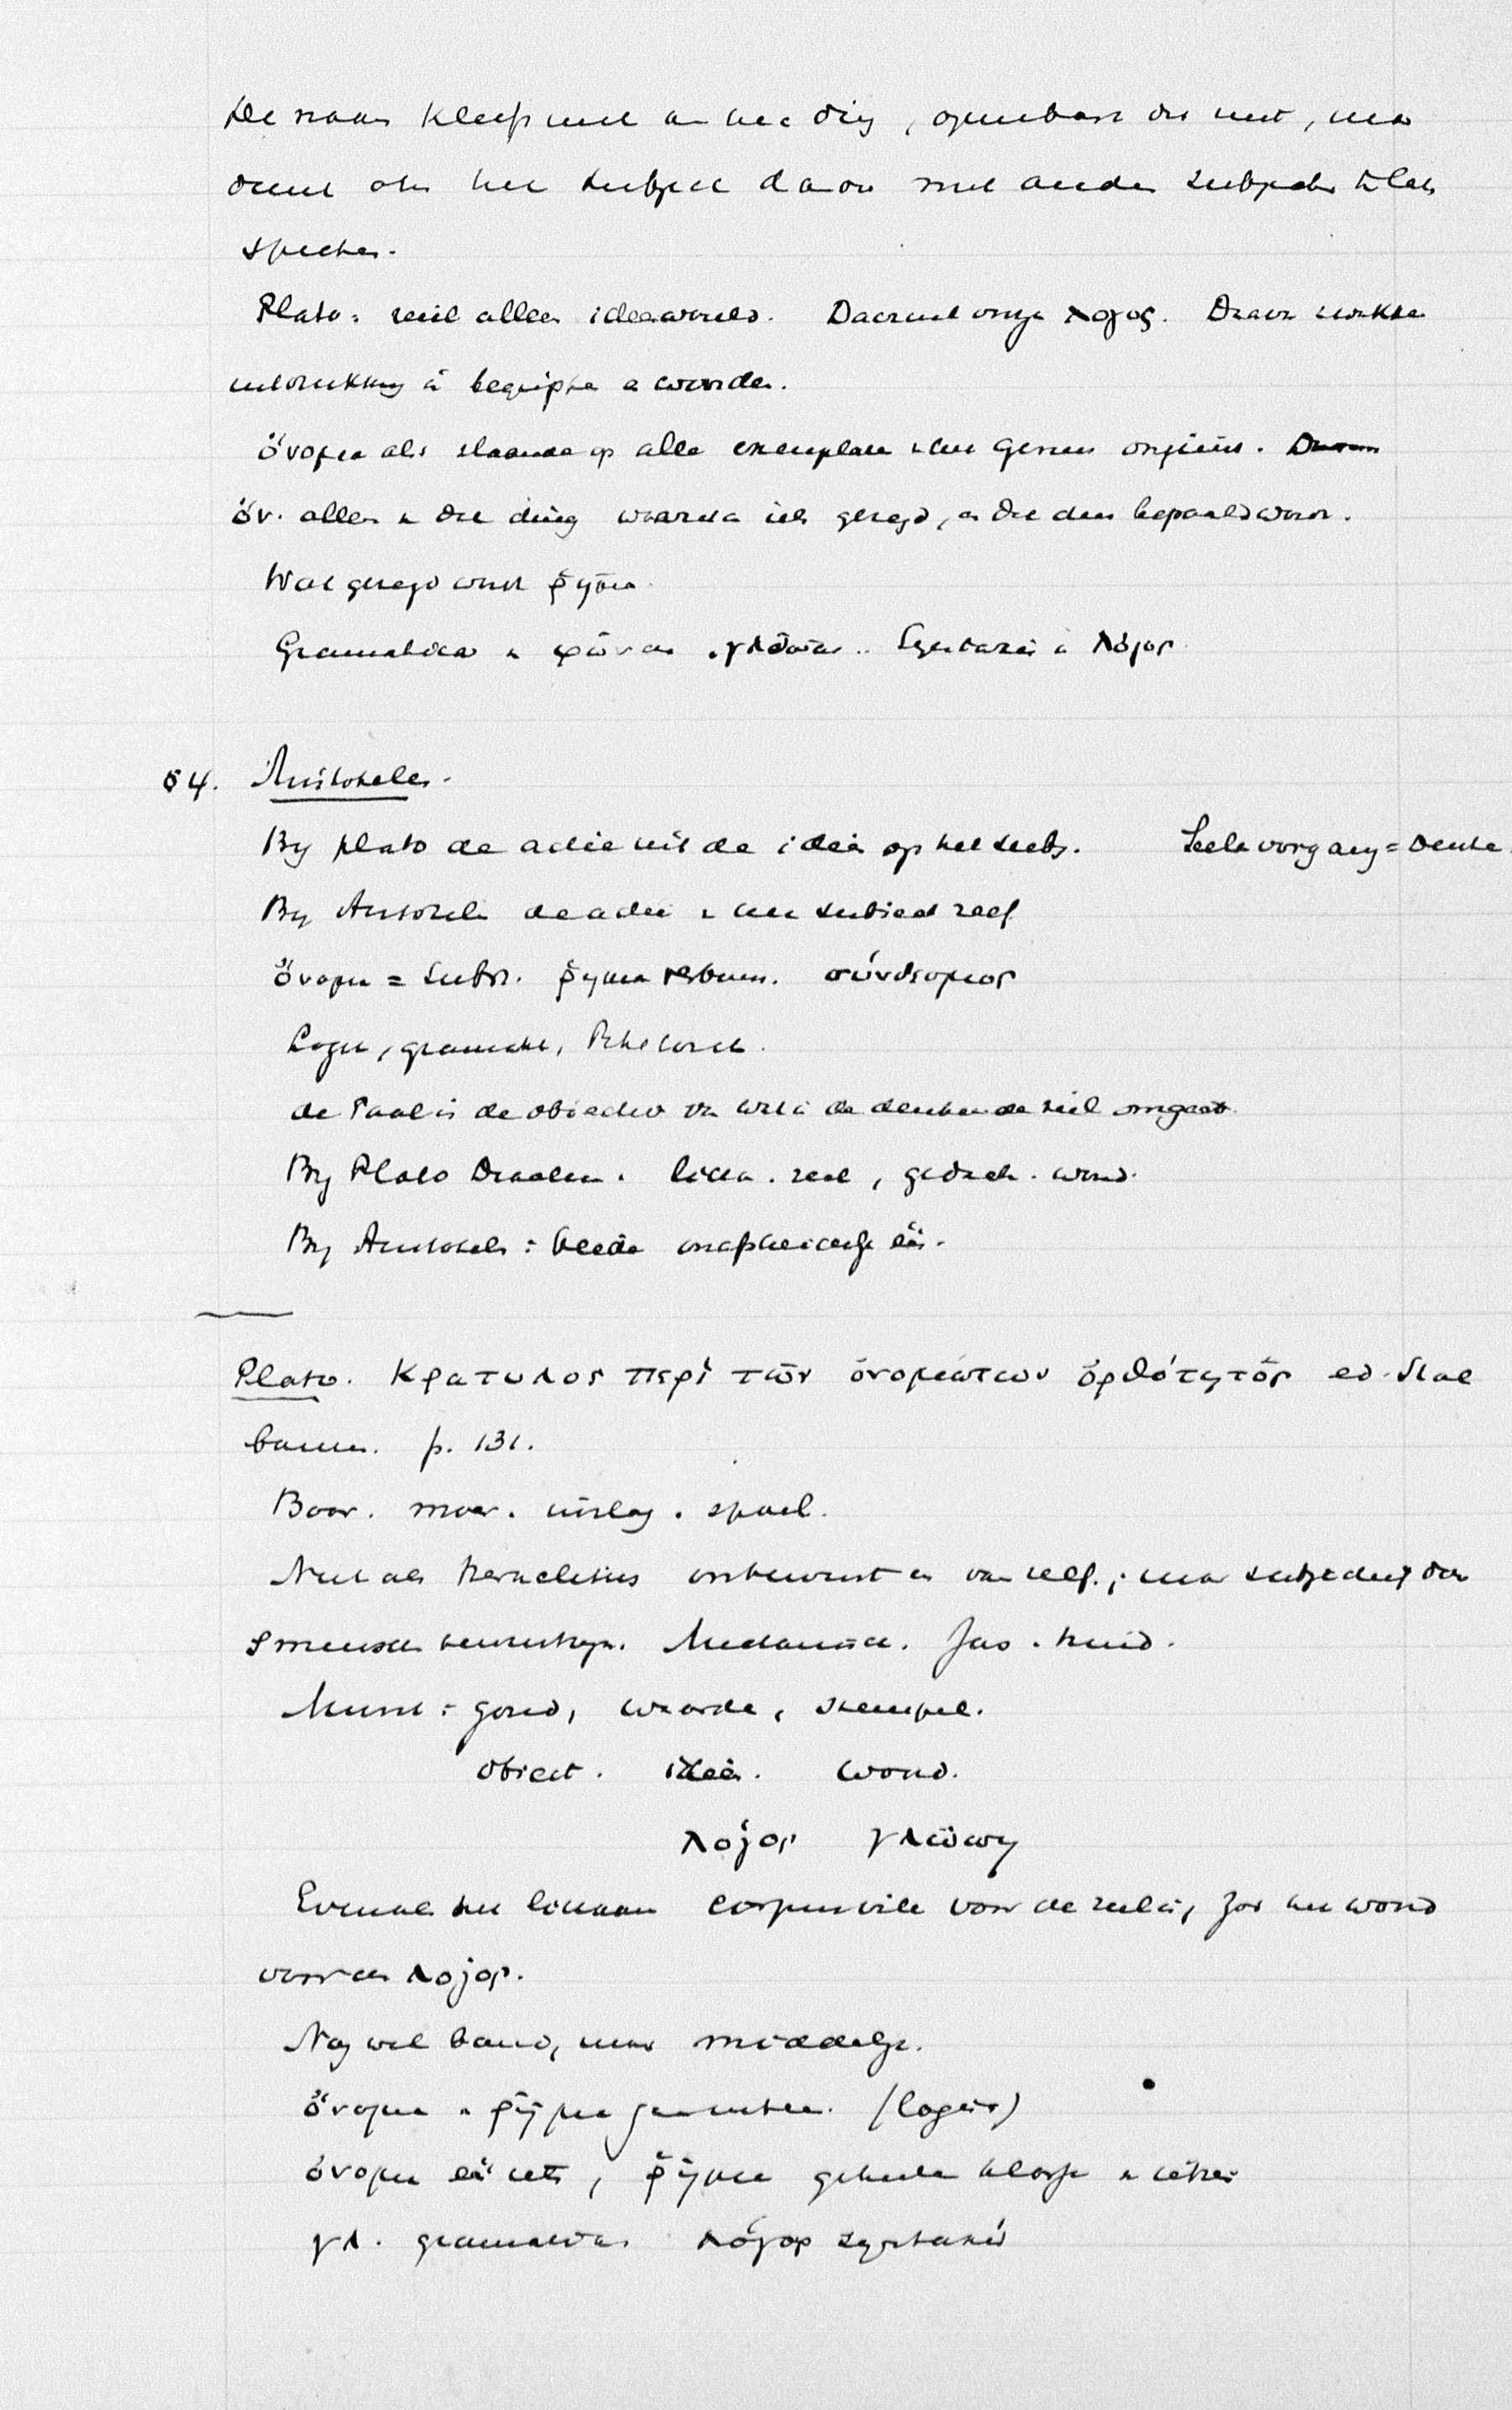 De naam kleeft niet aan het ding, openbaart dit niet, maar
dient om het subject daarov met andere subjecten te laten
spreken.
Plato: reëel alleen ideawereld. Daaruit onze λογος. Daarv
uitdrukking in begrippen en woorden.
ὄνομα als slaande op alle exemplaren v. het genus
ὄν. alleen v. dat ding waarvan iets gezegd, en dat dan bepaald word.
Wat gezegd word ῥῆμα.
Grammatica v φώνα . Syntaxis v λόγος
§ 4. Aristoteles.
By Plato de actie uit de idea op het subj. Seelevorgang = Denke
By Aristotel de actie v. het subject zelf
ὄνομα = subst. ῥῆμα verbum. σύνδεσμος
Logica, grammat, Rhetorica.
de Taal is de objectiv. van wat in de denkende ziel omgaat.
By Plato Dualism. licha. ziel, gedach. woord.
By Aristotel: beide onafscheidelyk één.
Plato. Κρατυλος περὶ τῶν ὀνομάτων ὀρθότητος ed. Stal
baum. p. 131.
Boor.
Niet als Heraclitus onbewust en van zelf; maar subjectief door
's menschen bewustzyn. Jas. huid.
Munt: goud, waarde, stempel.
object. idea. woord.
λόγος γλῶσση
Evenals het lichaam corpus vile voor de ziel is, zoo het woord
voor den λογος.
Nog wel band, maar middelyk.
ὄνομα . ῥῆμα (logisch)
ὄνομα één iets, ῥῆμα geheele klasse v
γλ. grammatica. λόγος syntaxis